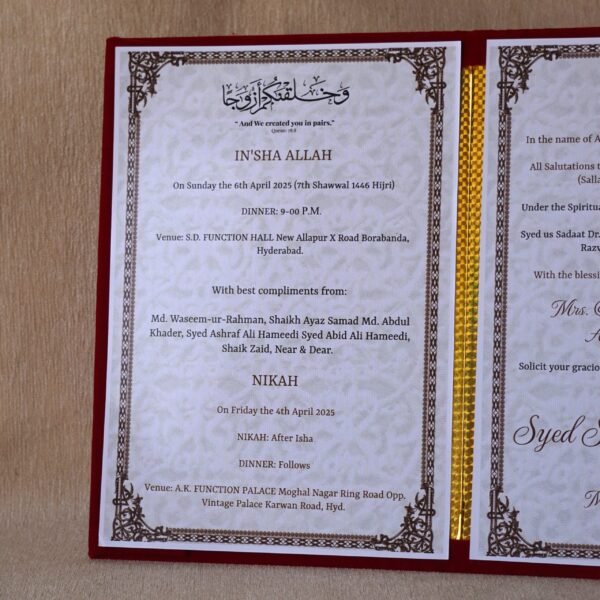 وخلقنكم أزوجا
" And We created you in pairs."
Quran: 78:8
IN'SHA ALLAH
On Sunday the 6th April 2025 (7th Shawwal 1446 Hijri)
DINNER: 9-00 P.M.
Venue: S.D. FUNCTION HALL New Allapur X Road Borabanda,
Hyderabad.
With best compliments from:
Md. Waseem-ur-Rahman, Shaikh Ayaz Samad Md. Abdul
Khader, Syed Ashraf Ali Hameedi Syed Abid Ali Hameedi,
Shaik Zaid, Near & Dear.
NIKAH
On Friday the 4th April 2025
NIKAH: After Isha
DINNER: Follows
Venue: A.K. FUNCTION PALACE Moghal Nagar Ring Road Opp.
Vintage Palace Karwan Road, Hyd.
In the name of A
All Salutations t
(Salla
Under the Spiritua
Syed us Sadaat Dr.
Razv
With the blessi
Mrs.
A
Solicit your gracio
Syed S
M